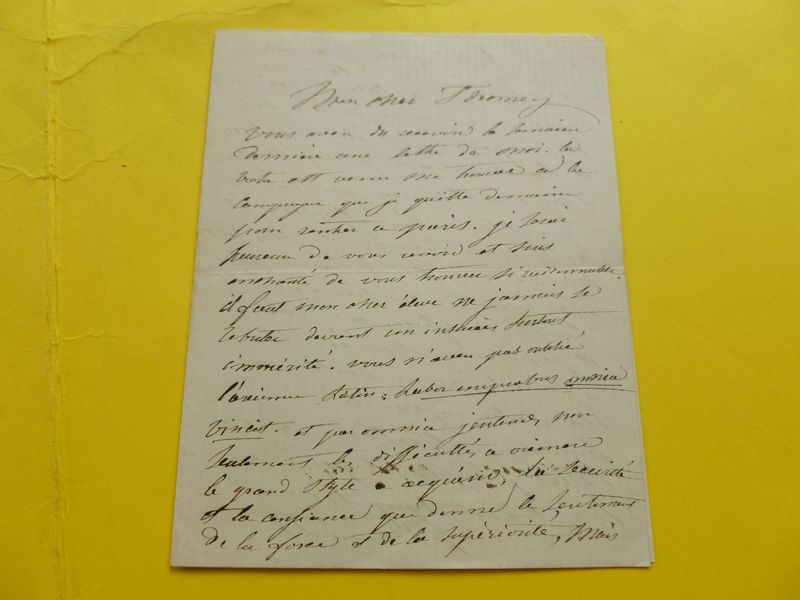 Mon cher
vous avez du recevoir la semaine
dernière une lettre de moi. la
votre est venue me trouver à la
campagne que je quitte demain
pour rentrer à paris. je serai
heureux de vous revoir et suis
enchanté de vous trouver si raisonnable.
il faut mon cher élève ne jamais se
rebuter devant un insuccès surtout
immérité. vous n'avez pas oublié
l'axiome latin: Labor improbus omnia
vincit. et par omnia j'entends non
seulement les difficultés à vaincre
le grand style à acquérir, la sécurité
et la confiance que donne le sentiment
de la force et de la supériorité, Mais